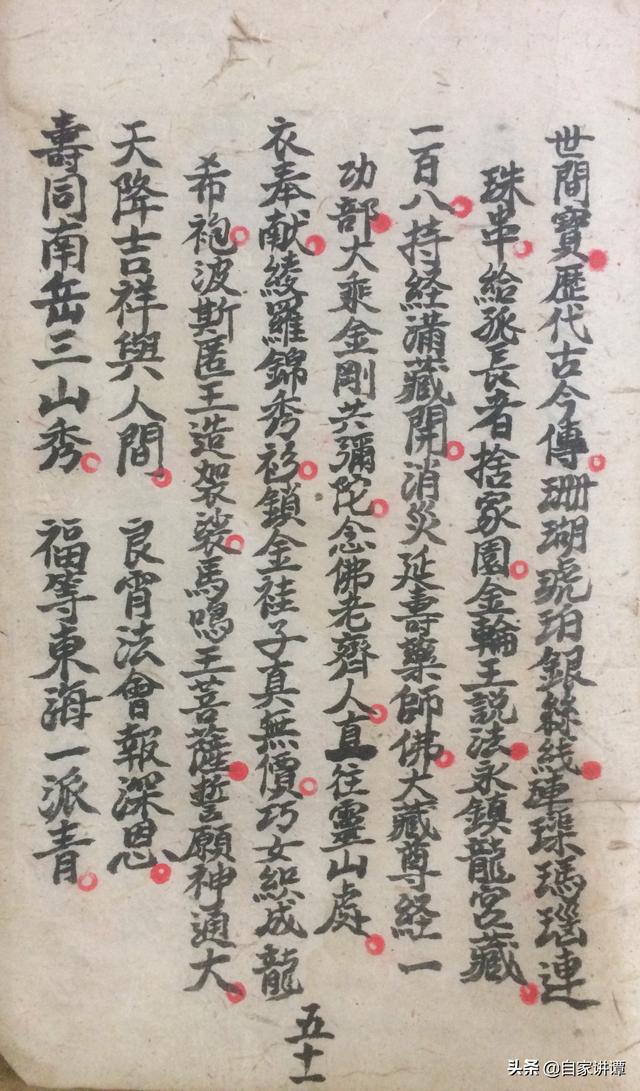 世間寶歷代古今傳珊瑚琥珀銀絲线硨磲瑪瑙連
珠串給孤長者捨家園金輪王説法永鎮龍宮藏
一百八持經滿藏開消災延壽藥師佛大藏尊經一
功部大乘金剛共彌陀念佛老齊人直往靈山處
衣奉献綾羅錦秀衫鎖金袿子真無價巧女織成龍
希袍波斯匿王造袈裟馬鳴王菩薩誓願神通大
天降吉祥與人間 良宵法會報深恩
壽同南岳三山秀 福等東海一派青
五十一
头条 @自家讲谭